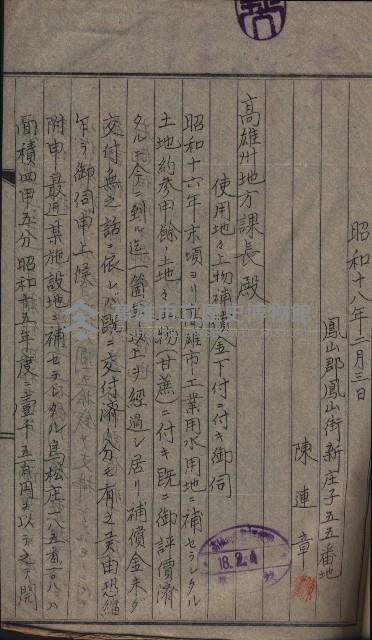 昭和十八年二月三日
鳳山郡鳳山街新庄子五五番地
陳連章
高雄州地方課長殿
使用地々上物補償金下付ニ付キ御伺
昭和十六年末頃ヨリ高雄市工業用水用地ニ補セラレタル
土地約参甲餘ノ土地々上物(甘蔗)ニ付キ既ニ御評價済
タルモ今ニ到ル迄一箇年以上ヲ経過シ居リ補償金未ダ
交付無之話ニ依レバ既ニ交付済ノ分モ有之候由恐縮
乍ラ御伺申上候
附申 最近某施設地ニ補セラレタル鳥松庄
面積四甲五分昭和十五年度ニ壹千五百円ヲ以テ之ヲ開
18.2.4
高雄市立歷史博物館